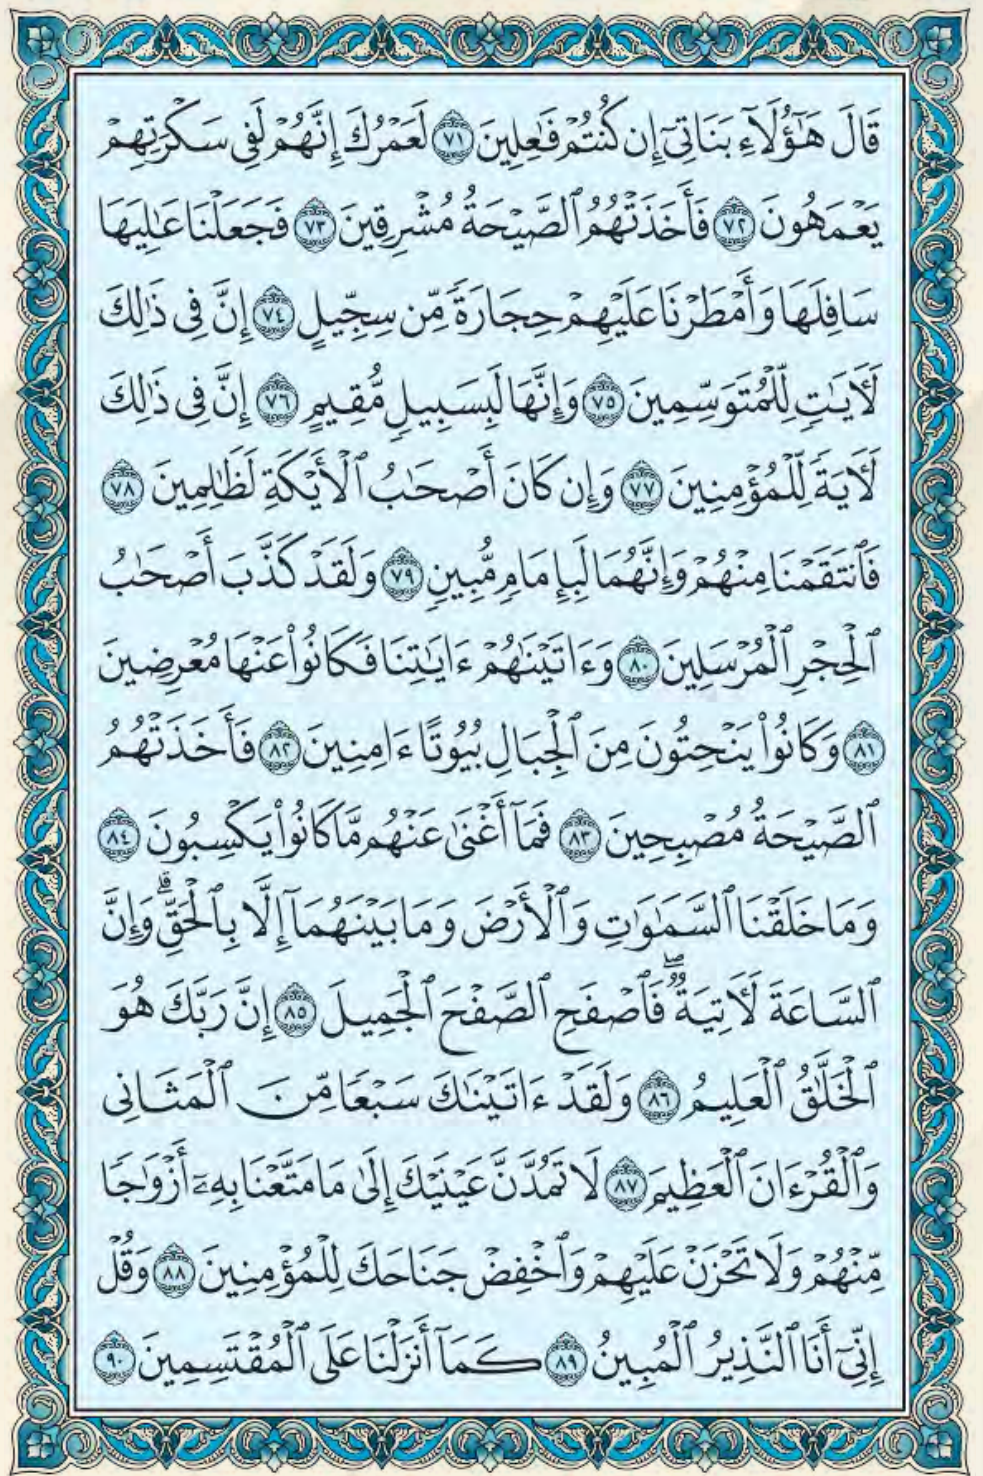 قَالَ هَٰٓؤُلَآءِ بَنَاتِيٓ إِن كُنتُمۡ فَٰعِلِينَ ٧١ لَعَمۡرُكَ إِنَّهُمۡ لَفِي سَكۡرَتِهِمۡ
يَعۡمَهُونَ ٧٢ فَأَخَذَتۡهُمُ ٱلصَّيۡحَةُ مُشۡرِقِينَ ٧٣ فَجَعَلۡنَا عَٰلِيَهَا
سَافِلَهَا وَأَمۡطَرۡنَا عَلَيۡهِمۡ حِجَارَةٗ مِّن سِجِّيلٍ ٧٤ إِنَّ فِي ذَٰلِكَ
لَأٓيَٰتٖ لِّلۡمُتَوَسِّمِينَ ٧٥ وَإِنَّهَا لَبِسَبِيلٖ مُّقِيمٍ ٧٦ إِنَّ فِي ذَٰلِكَ
لَأٓيَةٗ لِّلۡمُؤۡمِنِينَ ٧٧ وَإِن كَانَ أَصۡحَٰبُ ٱلۡأَيۡكَةِ لَظَٰلِمِينَ ٧٨
فَٱنتَقَمۡنَا مِنۡهُمۡ وَإِنَّهُمَا لَبِإِمَامٖ مُّبِينٖ ٧٩ وَلَقَدۡ كَذَّبَ أَصۡحَٰبُ
ٱلۡحِجۡرِ ٱلۡمُرۡسَلِينَ ٨٠ وَءَاتَيۡنَٰهُمۡ ءَايَٰتِنَا فَكَانُواْ عَنۡهَا مُعۡرِضِينَ
٨١ وَكَانُواْ يَنۡحِتُونَ مِنَ ٱلۡجِبَالِ بُيُوتًا ءَامِنِينَ ٨٢ فَأَخَذَتۡهُمُ
ٱلصَّيۡحَةُ مُصۡبِحِينَ ٨٣ فَمَآ أَغۡنَىٰ عَنۡهُم مَّا كَانُواْ يَكۡسِبُونَ ٨٤
وَمَا خَلَقۡنَا ٱلسَّمَٰوَٰتِ وَٱلۡأَرۡضَ وَمَا بَيۡنَهُمَآ إِلَّا بِٱلۡحَقِّۗ وَإِنَّ
ٱلسَّاعَةَ لَأٓتِيَةٞۖ فَٱصۡفَحِ ٱلصَّفۡحَ ٱلۡجَمِيلَ ٨٥ إِنَّ رَبَّكَ هُوَ
ٱلۡخَلَّٰقُ ٱلۡعَلِيمُ ٨٦ وَلَقَدۡ ءَاتَيۡنَٰكَ سَبۡعٗا مِّنَ ٱلۡمَثَانِي
وَٱلۡقُرۡءَانَ ٱلۡعَظِيمَ ٨٧ لَا تَمُدَّنَّ عَيۡنَيۡكَ إِلَىٰ مَا مَتَّعۡنَا بِهِۦٓ أَزۡوَٰجٗا
مِّنۡهُمۡ وَلَا تَحۡزَنۡ عَلَيۡهِمۡ وَٱخۡفِضۡ جَنَاحَكَ لِلۡمُؤۡمِنِينَ ٨٨ وَقُلۡ
إِنِّيٓ أَنَا ٱلنَّذِيرُ ٱلۡمُبِينُ ٨٩ كَمَآ أَنزَلۡنَا عَلَى ٱلۡمُقۡتَسِمِينَ ٩٠